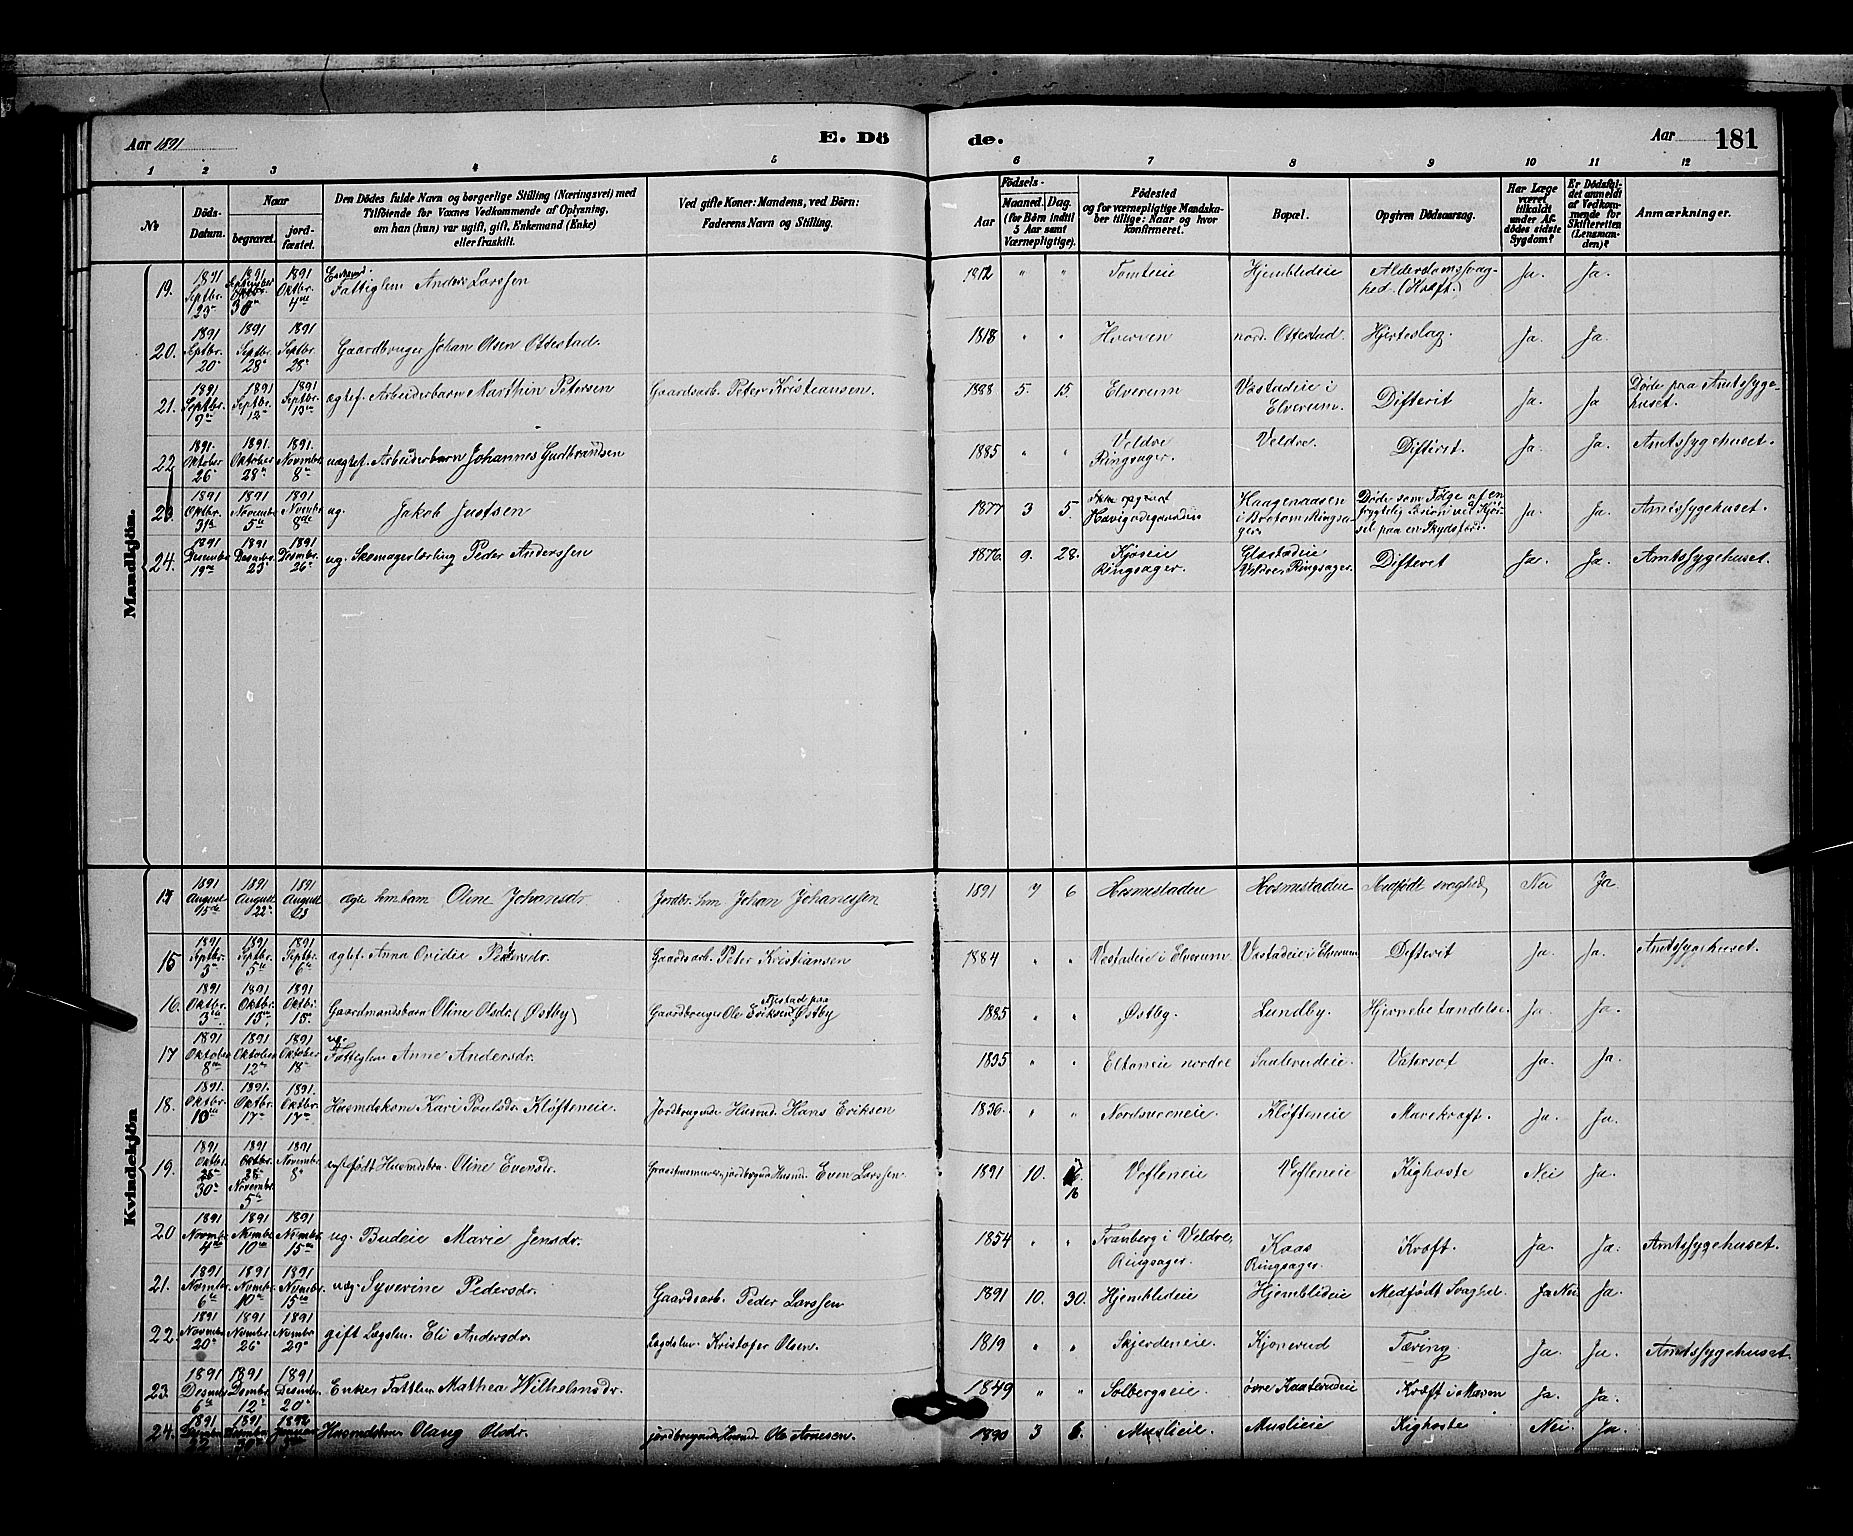 Aar 1891
E. Dö
de.
Aar
181
1 2 3 4 5 6 7 8 9 10 11 12
No
Döds-Datum.
Naar
begravet.
jordfæstet.
Den Dödes fulde Navn og borgerlige Stilling (Næringsvei) med
Tilföiende for Voxnes Vedkommende af Oplysning,
om han (hun) var ugift, gift, Enkemand (Enke)
eller fraskilt.
Ved gifte Koner: Mandens, ved Börn:
Faderens Navn og Stilling.
Födsels-
Aar
Maaned. Dag.
(for Börn indtil
5 Aar samt
Værnepligtige).
Födested
og for værnepligtige Mandskaber tillige: Naar og hvor
konfirmeret.
Bopæl.
Opgiven Dödsaarsag.
Har Læge
været
tilkaldt
under Afdödes sidste
Sygdom?
Er Dödsfaldet anmeldt
af Vedkommende for
Skifteretten
(Lensmanden)?
Anmærkninger.
Mandkjön.
19. 1891 Septbr. 23 1891 September 30 1891 Oktbr. 4de Enkemd. Fattiglem Anders Larssen 1812 " " Tomteie Hjemblideie Alderdomssvaghed. (Kræft.) Ja. Ja.
20. 1891 Septbr. 20 1891 Septbr. 28 1891 Septbr. 28 Gaardbruger Johan Olsen Ottestad. 1818 " " Hverven nord. Ottestad. Hjerteslag. Ja. Ja.
21. 1891 Septbr. 9de 1891 Septbr. 12 1891 Septbr. 19de ægtef. Arbeiderbarn Marthin Petersen Gaardsarb. Peter Kristiansen. 1888 5. 15. Elverum Vestadeie i Elverum. Difterit Ja. Ja Døde paa Amtssygehuset.
22 1891. Oktober 26 1891. Oktober 28 1891. Novmbr. 8de uægtef. Arbeiderbarn Johannes Gudbrandsen 1885 " " Veldre Ringsager. Veldre. Difterit. Ja. Ja. Amtssygehuset.
23. 1891 Oktbr. 31te 1891 Novmbr. 5te 1891 Novmbr. 8de ug. Jakob Justsen 1877 3 5. Haagenaasen i Brøtum Ringsager Døde som Følge af en frygtelig Lesion ved Kjørsel paa en Skydsfærd. Ja. Ja. Amtssygehuset.
24. 1891 Desember 19de 1891 Desmbr. 23 1891 Desmbr. 26 ug. Skomagerlærling Peder Anderssen 1876. 9. 28. Kjøseie Ringsager. Glæstadeie Veldre, Ringsager. Difterit Ja. Ja. Amtssygehuset.
Kvindekjön
15 1891 August 15de 1891 August 22 1891 August 23 ægte hmbarn Oline Johansdr. Jordbr. hm Johan Johanessen 1891 7 6 Hosmestadeie Hosmestadeie Medfødt svaghed Nei Ja
15 1891 Septbr. 3 1891 Septbr. 5 1891 Septbr. 6 ægtef. Anna Ovidie Petersdr. Gaardsarb. Peter Kristiansen 1884 " " Vestadeie i Elverum. Vestadeie i Elverum Difterit Ja. Ja. Amtssygehuset.
16. 1891 Oktbr. 3 1891 Oktbr. 15 1891 Oktbr. 15 Gaardmandsbarn Oline Olsdr. (Østby) Gaardbruger Ole Eriksen Østby 1885 " " Østby. Lundby. Hjernebetændelse. Ja. Ja.
17 1891 Oktober 8de 1891 Oktober 12 1891 Oktober 18 ug. Fattiglem Anne Andersdr. 1835 " " Eltoneie nordre Saxlerudeie. Vatersot Ja. Ja.
18. 1891. Oktbr. 10 1891. Oktbr. 17 1891 Oktbr. 17 Husmdskone Kari Poulsdr. Kløfteneie. Jordbrugende Husmd. Hans Eriksen 1836. " " Nordsveeneie. Kløfteneie Mavekræft. Ja. Ja.
19. 1891 Oktbr. 30 1891 Oktbr. Novembr. 5 1891 Novembr. 8 Oline Evensdr. jordbrugnd Husmd. Even Larssen 1891 10. 16 Vefleneie Vefleneie Kighoste Nei Ja.
20 1891 Novmbr. 4de 1891 Nvmbr. 10 1891 Nvmbr. 15 ug. Budeie Marie Jensdr. 1854 " " Tranberg i Veldre, Ringsager. Kaas Ringsager. Kræft. Ja. Ja. Amtssygehuset.
21. 1891 Novmbr. 6te 1891 Nvmbr. 10 1891 Nvmbr. 15 uæg. Syverine Pedersdr. Gaardsarb. Peder Larssen 1891 10. 30. Hjemblideie Hjemblideie Medfødt Svaghed. Ja Nei Ja.
22. 1891 Novmbr. 20 1891 Novmbr. 26 1891 Novmbr. 29 gift Lægslem. Eli Andersdr. Lægdslem. Kristofer Olsen. 1819 " " Skjerdeneie. Kjonerud Tæring. Ja. Ja. Amtssygehuset.
23. 1891 Desmbr. 6te 1891 Desmbr. 12 1891 Desmbr. 20 Enke Fattlem Mathea Wilhelmsdr. 1849 " " Solbergseie. øvre Kaaterudeie Kræft i Maven Ja. Ja.
24. 1891 Desmbr. 22 1891 Desmbr. 30 1892 Januar 3de Olaug Olsdr. jordbrugende Husmd. Ole Arnesen. 1890 3 6. Muslieie. Muslieie Kighoste Nei. Ja.